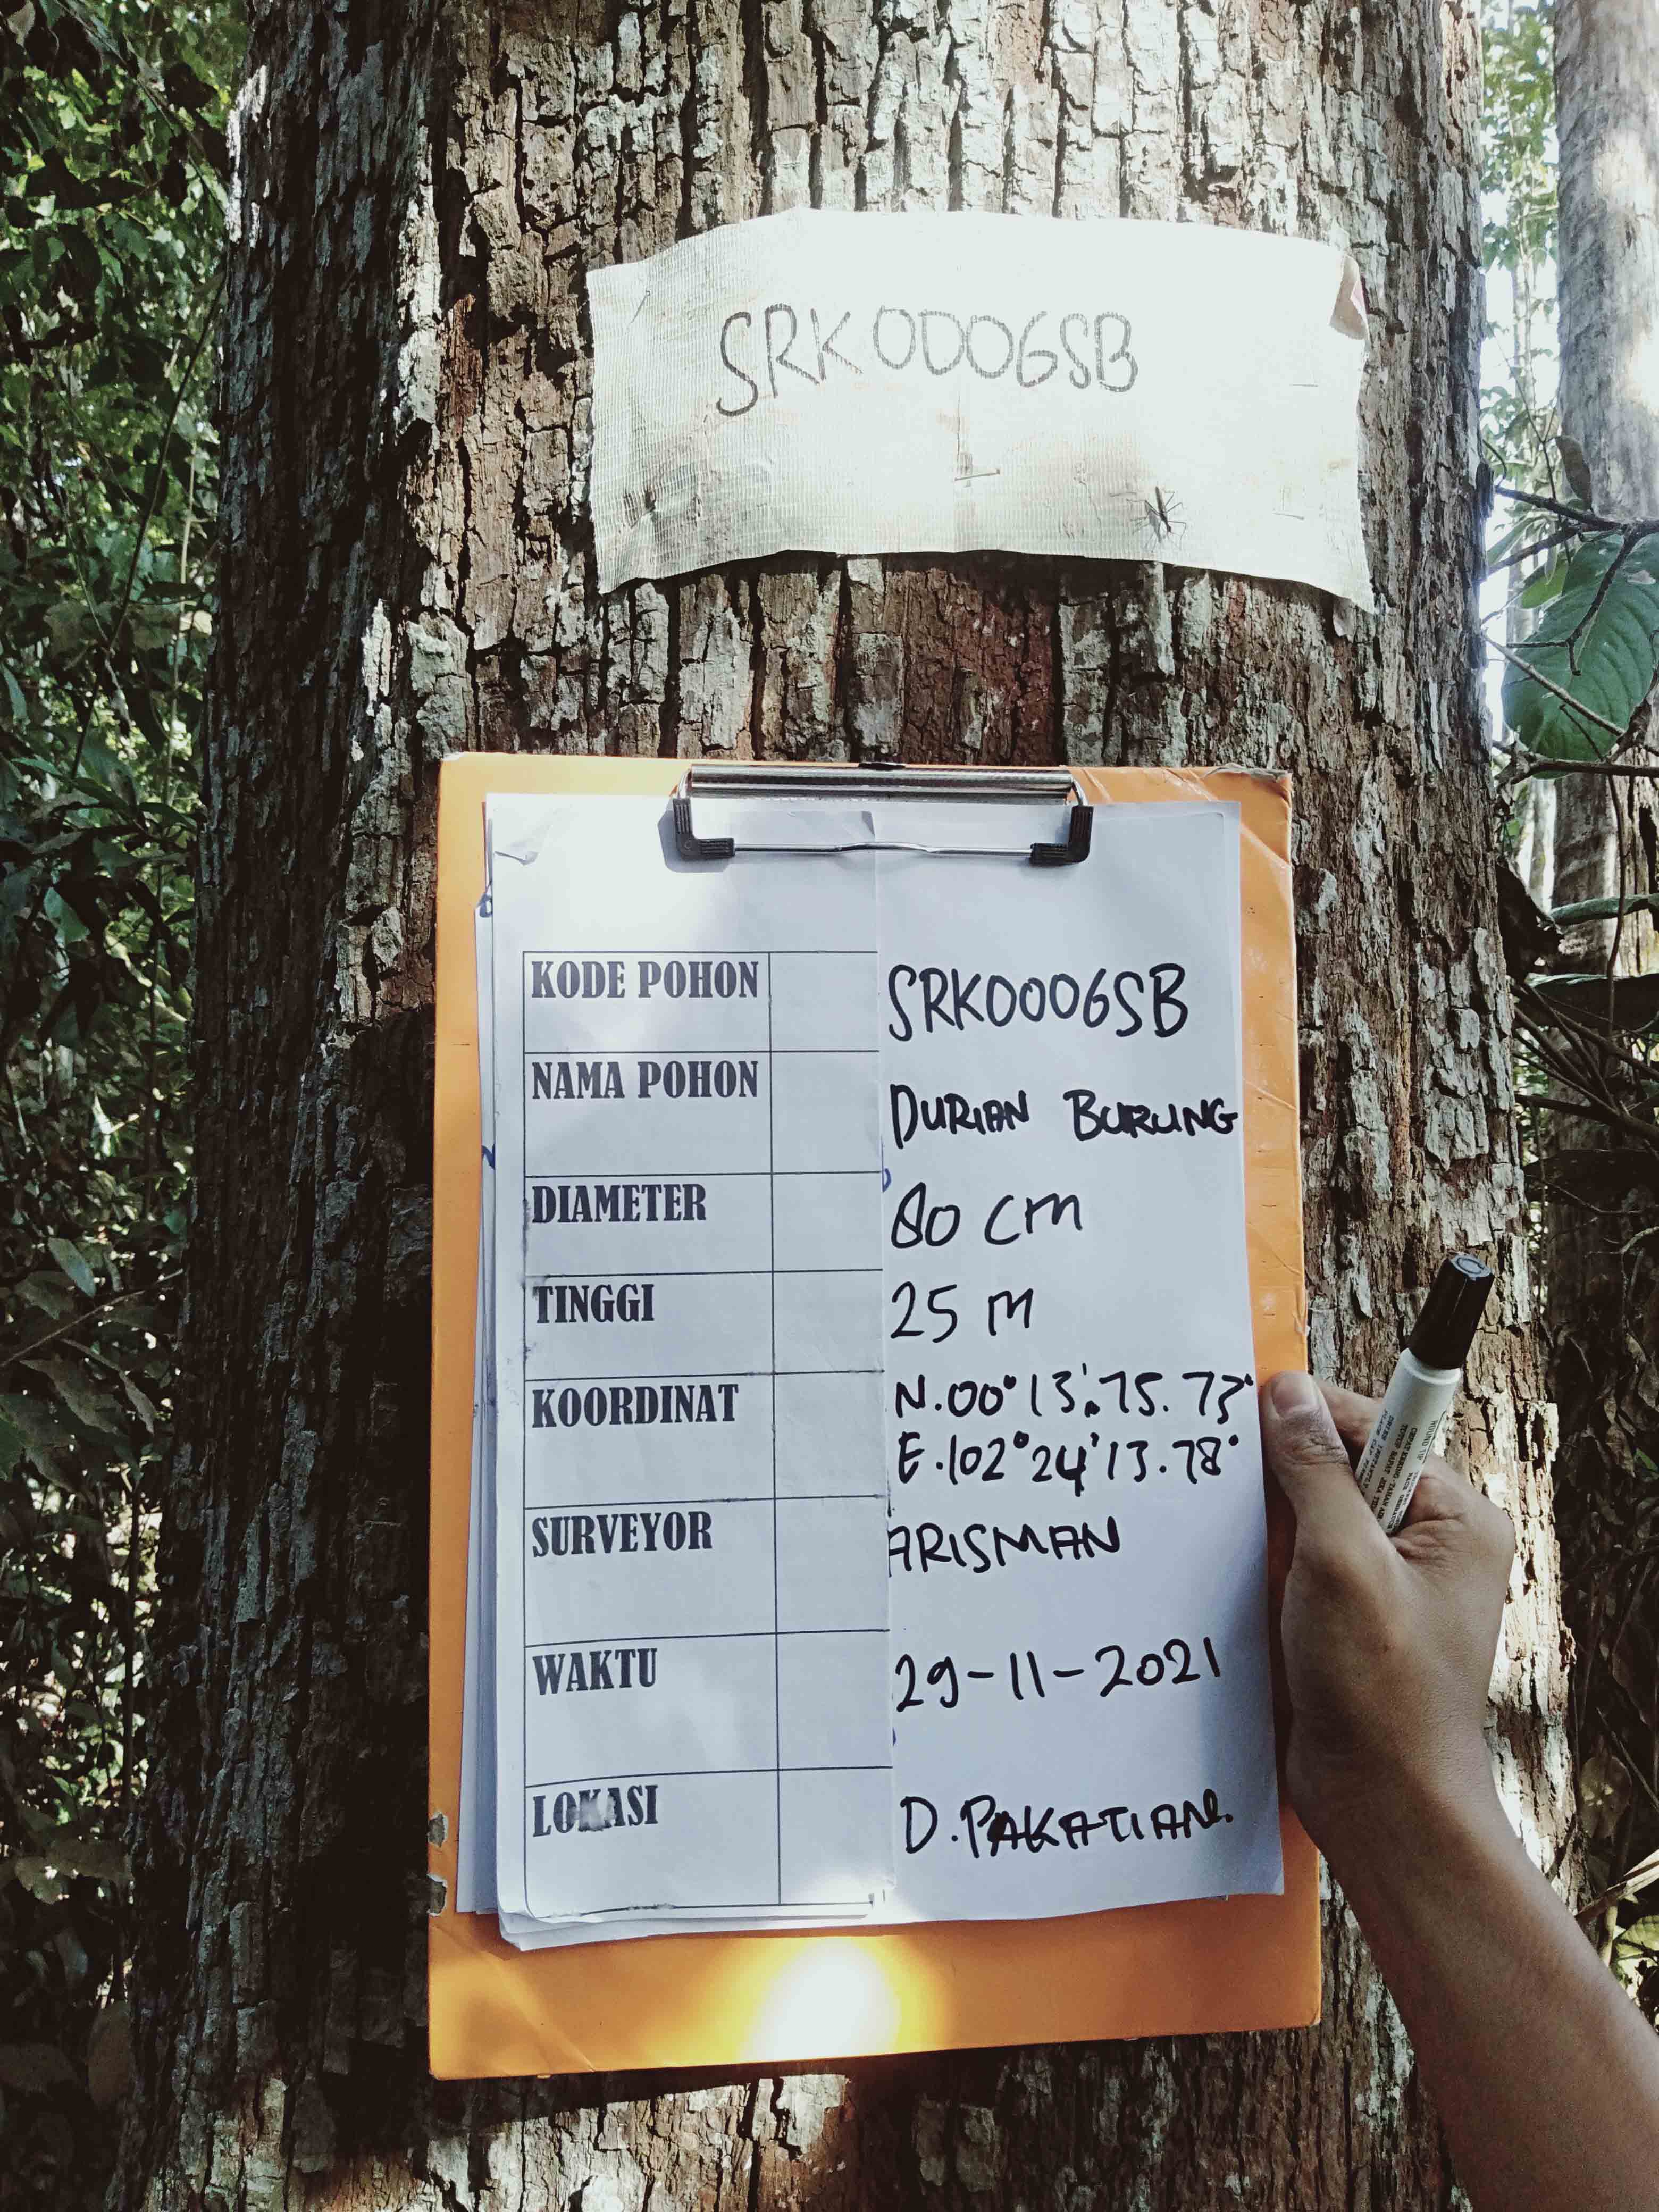 SRK0006SB
KODE POHON SRK0006SB
NAMA POHON DURIAN BURUNG
DIAMETER 80 cm
TINGGI 25 m
KOORDINAT N.00° 13'.75.73"
E.102° 24' 13.78"
SURVEYOR ARISMAN
WAKTU 29-11-2021
LOKASI D.PAKATIAN.